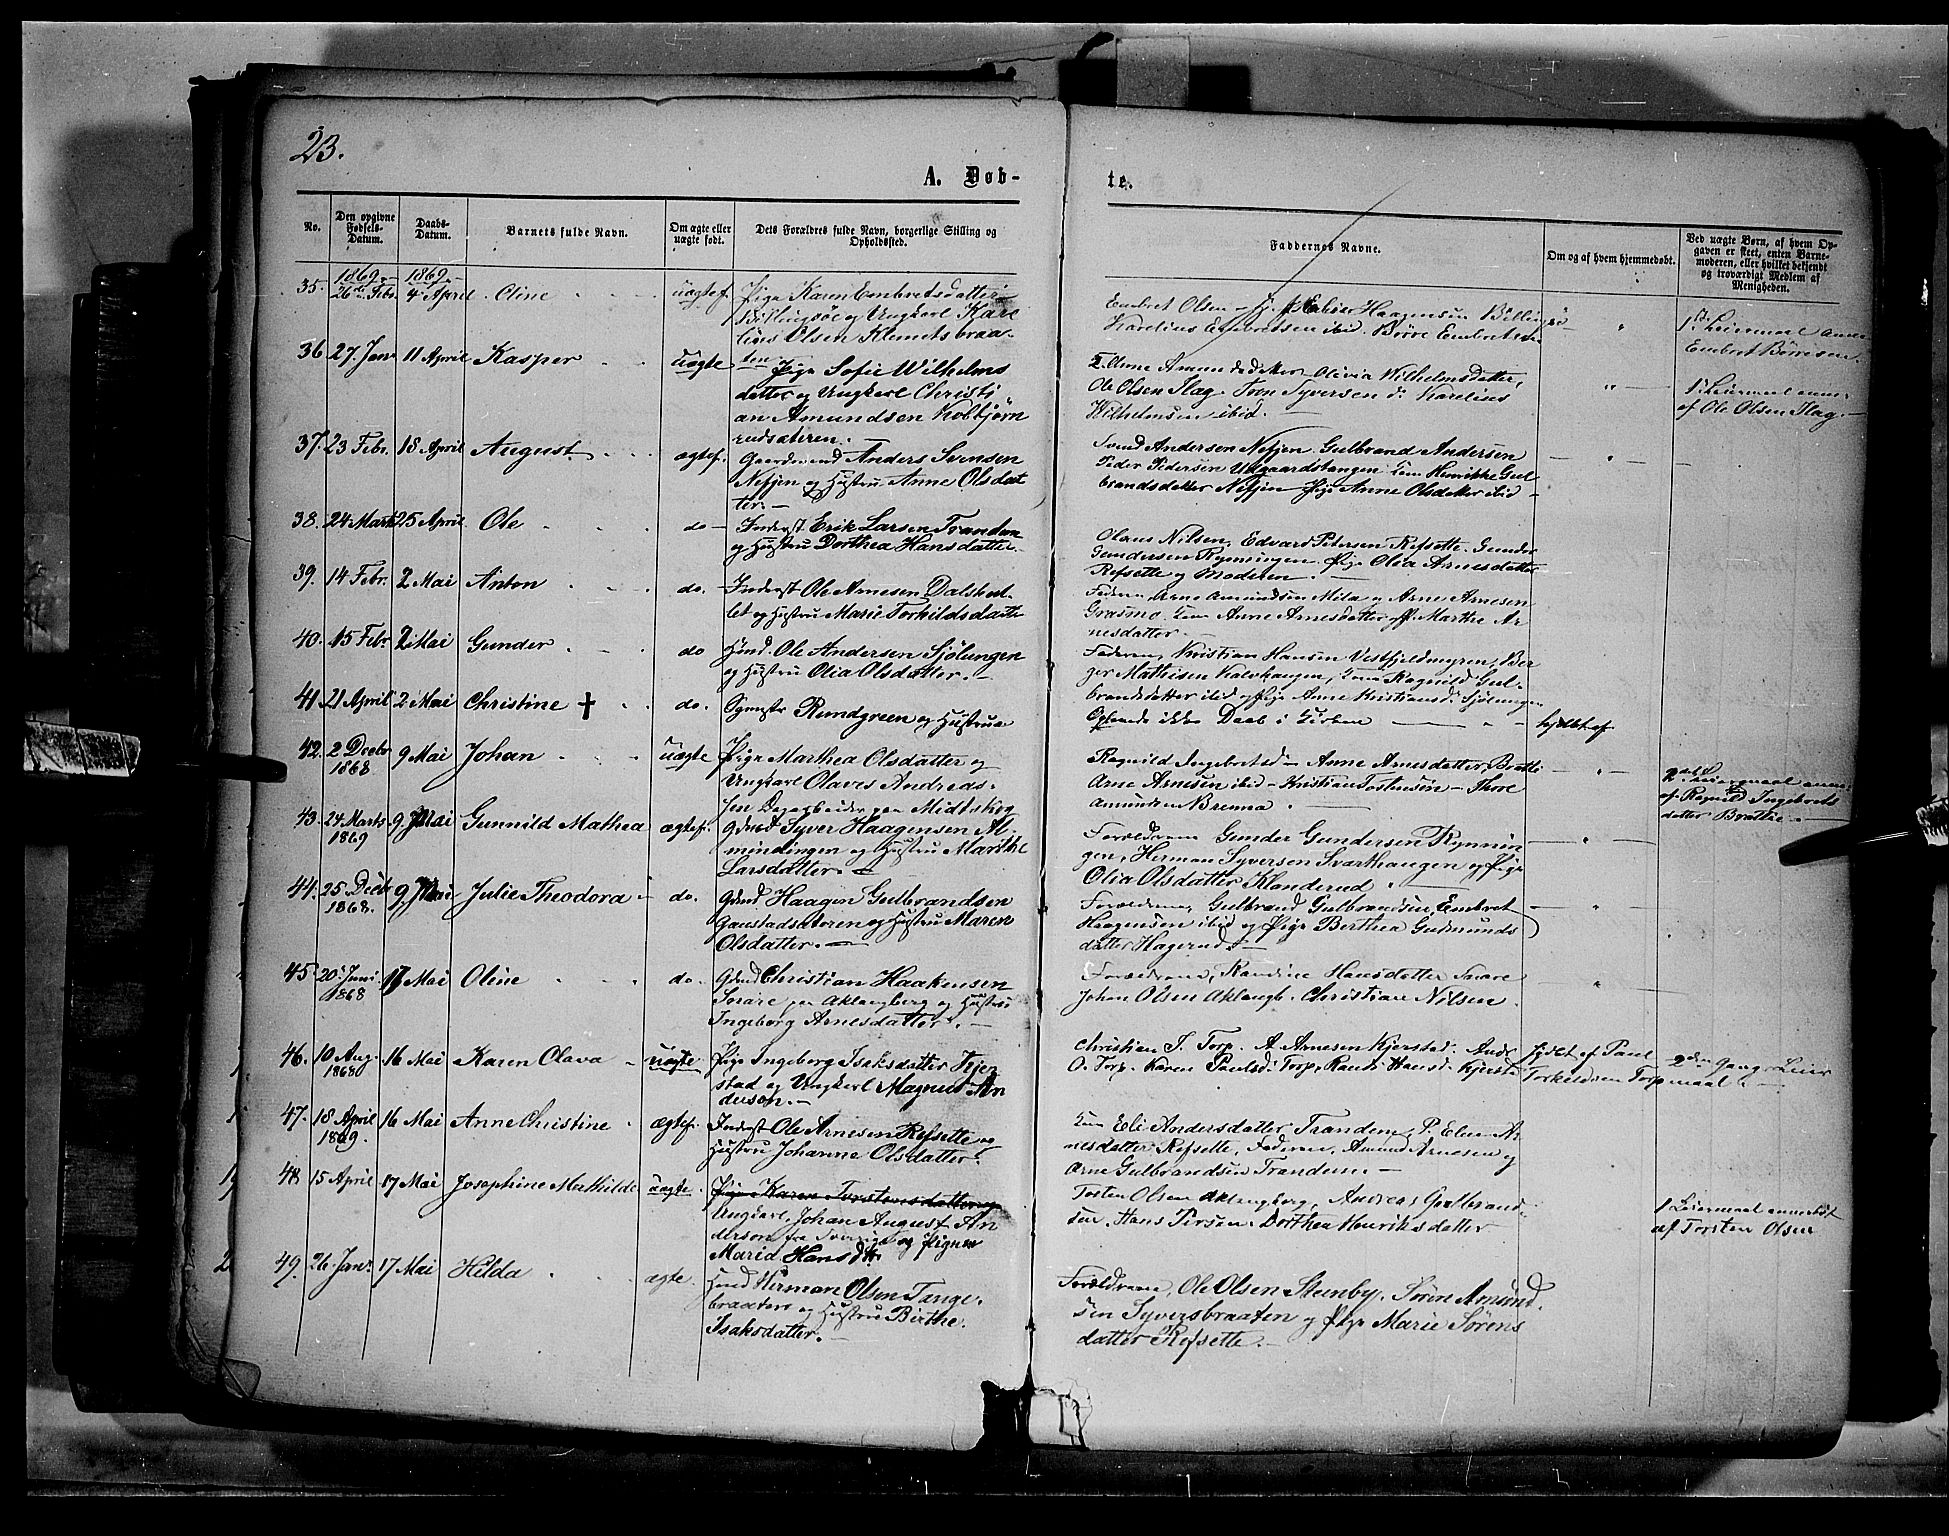 23.
A. Døb-
te.
No.
Den opgivne Fødsels-Datum.
Daabs-Datum.
Barnets fulde Navn.
Om ægte eller uægte født.
Dets Forældres fulde Navn, borgerlige Stilling og Opholdssted.
Faddernes Navne.
Om og af hvem hjemmedøbt.
Ved uægte Børn, af hvem Opgaven er skeet, enten Barnemoderen, eller hvilket bekjendt og troværdigt Medlem af Menigheden.
35. 1869 26de Febr. 1869 4 April Oline uægtef. Pige Karen Embretsdatter
Billingsøe og Ungkarl Kare
lius Olsen Klemetsbraa-
ten
Embret Olsen Haagensen Billingsø
Karelius Embretsen ibid. Børre Embretsen
1ste Leiermaal anm.
Embret Børresen.
36 27. Jan 11 April Kasper uægte Pige Sofie Wilhelms
datter og Ungkarl Christi
an Amundsen Kolbjørn
rudsæteren.
Anne Amundsdatter Olivia Wilhelmsdatter,
Ole Olsen Flag. Iver Syversen Karelius
Wilhelmsen ibid.
1ste Leiermaal anm.
af Ole Olsen Flag.
37. 23 Febr. 18 April August ægtef. Gaardmand Anders Svensen
Nefjen og Hustru Anne Olsdat
ter.
Svend Andersen Nefjen Gulbrand Andersen
Peder Pedersen Utgaardstangen Kone Henrikke Gul
brandsdatter Nefjen Pige Anne Olsdatter ibid
38. 24 Marts 25 April Ole do Inderst Erik Larsen Trandem
og Hustru Dorthea Hansdatter
Olaus Nilsen, Edvard Petersen Refsette. Gunder
Gundersen Rynningen. Pige Olia Arnesdatter
Refsette og Moderen.
39. 14 Febr. 2 Mai Anton do. Inderst Ole Arnesen Dalsbot-
let og Hustru Marie Torkildsdatter
Faderen, Arne Amundsen Mila og Arne Arnesen
Grasmo. Kone Anne Arnesdatter Marthe Ar
nesdatter
40. 15 Febr. 2 Mai Gunder do Hmd. Ole Andersen Sjølungen
og Hustru Olia Olsdatter.
Faderen, Kristian Hansen Vestfjeldmyren, Ber
ger Mathisen Kalvhaugen, Kone Ragnild Gul-
brandsdatter ibid og Pige Anne Kristiansd. Sjølungen
41 21 April 2 Mai Christine † do. Rundgreen og Hustru
ikke Daab i Kirken
42. 2 Decbr 1868 9 Mai Johan uægte Pige Marthea Olsdatter og
Ungkarl Olaves Andreas-
sen Dagarbeider paa Midtskog
Ragnild Ingebretsd. Anne Arnesdatter, Brattli
Arne Arnesen ibid - Kristian Tostensen - Thore
Amundsen Brenna.
2det Leiermaal anm.
af Ragnild Ingebrets
datter Brattli.
43. 24 Marts 1869 9 Mai Gunnild Mathea ægtef. Gdmd Syver Haagensen Al
mindingen og Hustru Marthe
Larsdatter.
Forældrene Gunder Gundersen Rynnin
gen, Herman Syversen Svarthaugen og Pige
Olia Olsdatter Klanderud.
44. 25 Decbr 1868. 9 Mai Julie Theodora do. Gdmd Haagen Gulbrandsen
Gaustadsæteren og Hustru Maren
Olsdatter.
Forældrene, Gulbrand Gulbrandsen, Embret
Haagensen ibid og Pige Berthea Gudmunds
datter Hagerud.
45 20 Juni 1868 17 Mai Oline do. Gdmd Christian Haakensen
Snare paa Aklangberg og Hustru
Ingeborg Arnesdatter.
Forældrene, Randine Hansdatter Snare
Johan Olsen Aklangb. Christian Nilsen.
46. 10 Aug. 1868 16 Mai Karen Olava uægte Pige Ingeborg Isaksdatter Kjer
stad og Ungkarl Magnus An
dersen.
Christian J. Torp. A. Arnesen Kjerstad. Andr.
O. Torp. Karen Paulsd. Torp, Randi Hansd. Kjerstad
af Paul
Torkildsen Torp
2den Gang Leier
maal.
47. 18 April 1869. 16 Mai Anne Christine ægtef. Inderst Ole Arnesen Refsette og
Hustru Johanne Olsdatter.
Kone Eli Andersdatter Trandem, P. Elen Ar
nesdatter Refsette, Faderen, Amund Arnesen og
Arne Gulbrandsen Trandem.
48 15 April 17 Mai Josephine Mathilde uægte. Pige Karen Torstensdatter og
Ungkarl, Johan August An
derson fra Sverige og Pigen
Maria Hansdtr.
Tosten Olsen Aklangberg, Andreas Gulbrand
sen, Hans Persen. Dorthea Henriksdatter
1 Leiermaal anmeldt
af Torsten Olsen
49. 26 Janr. 17 Mai Hilda ægte. Hmd Herman Olsen Tange-
braaten og Hustru Birthe
Isaksdatter.
Forældrene, Ole Olsen Stenby, Søren Amund-
sen Syversbraaten og Pige Marie Sørens
datter Refsette.